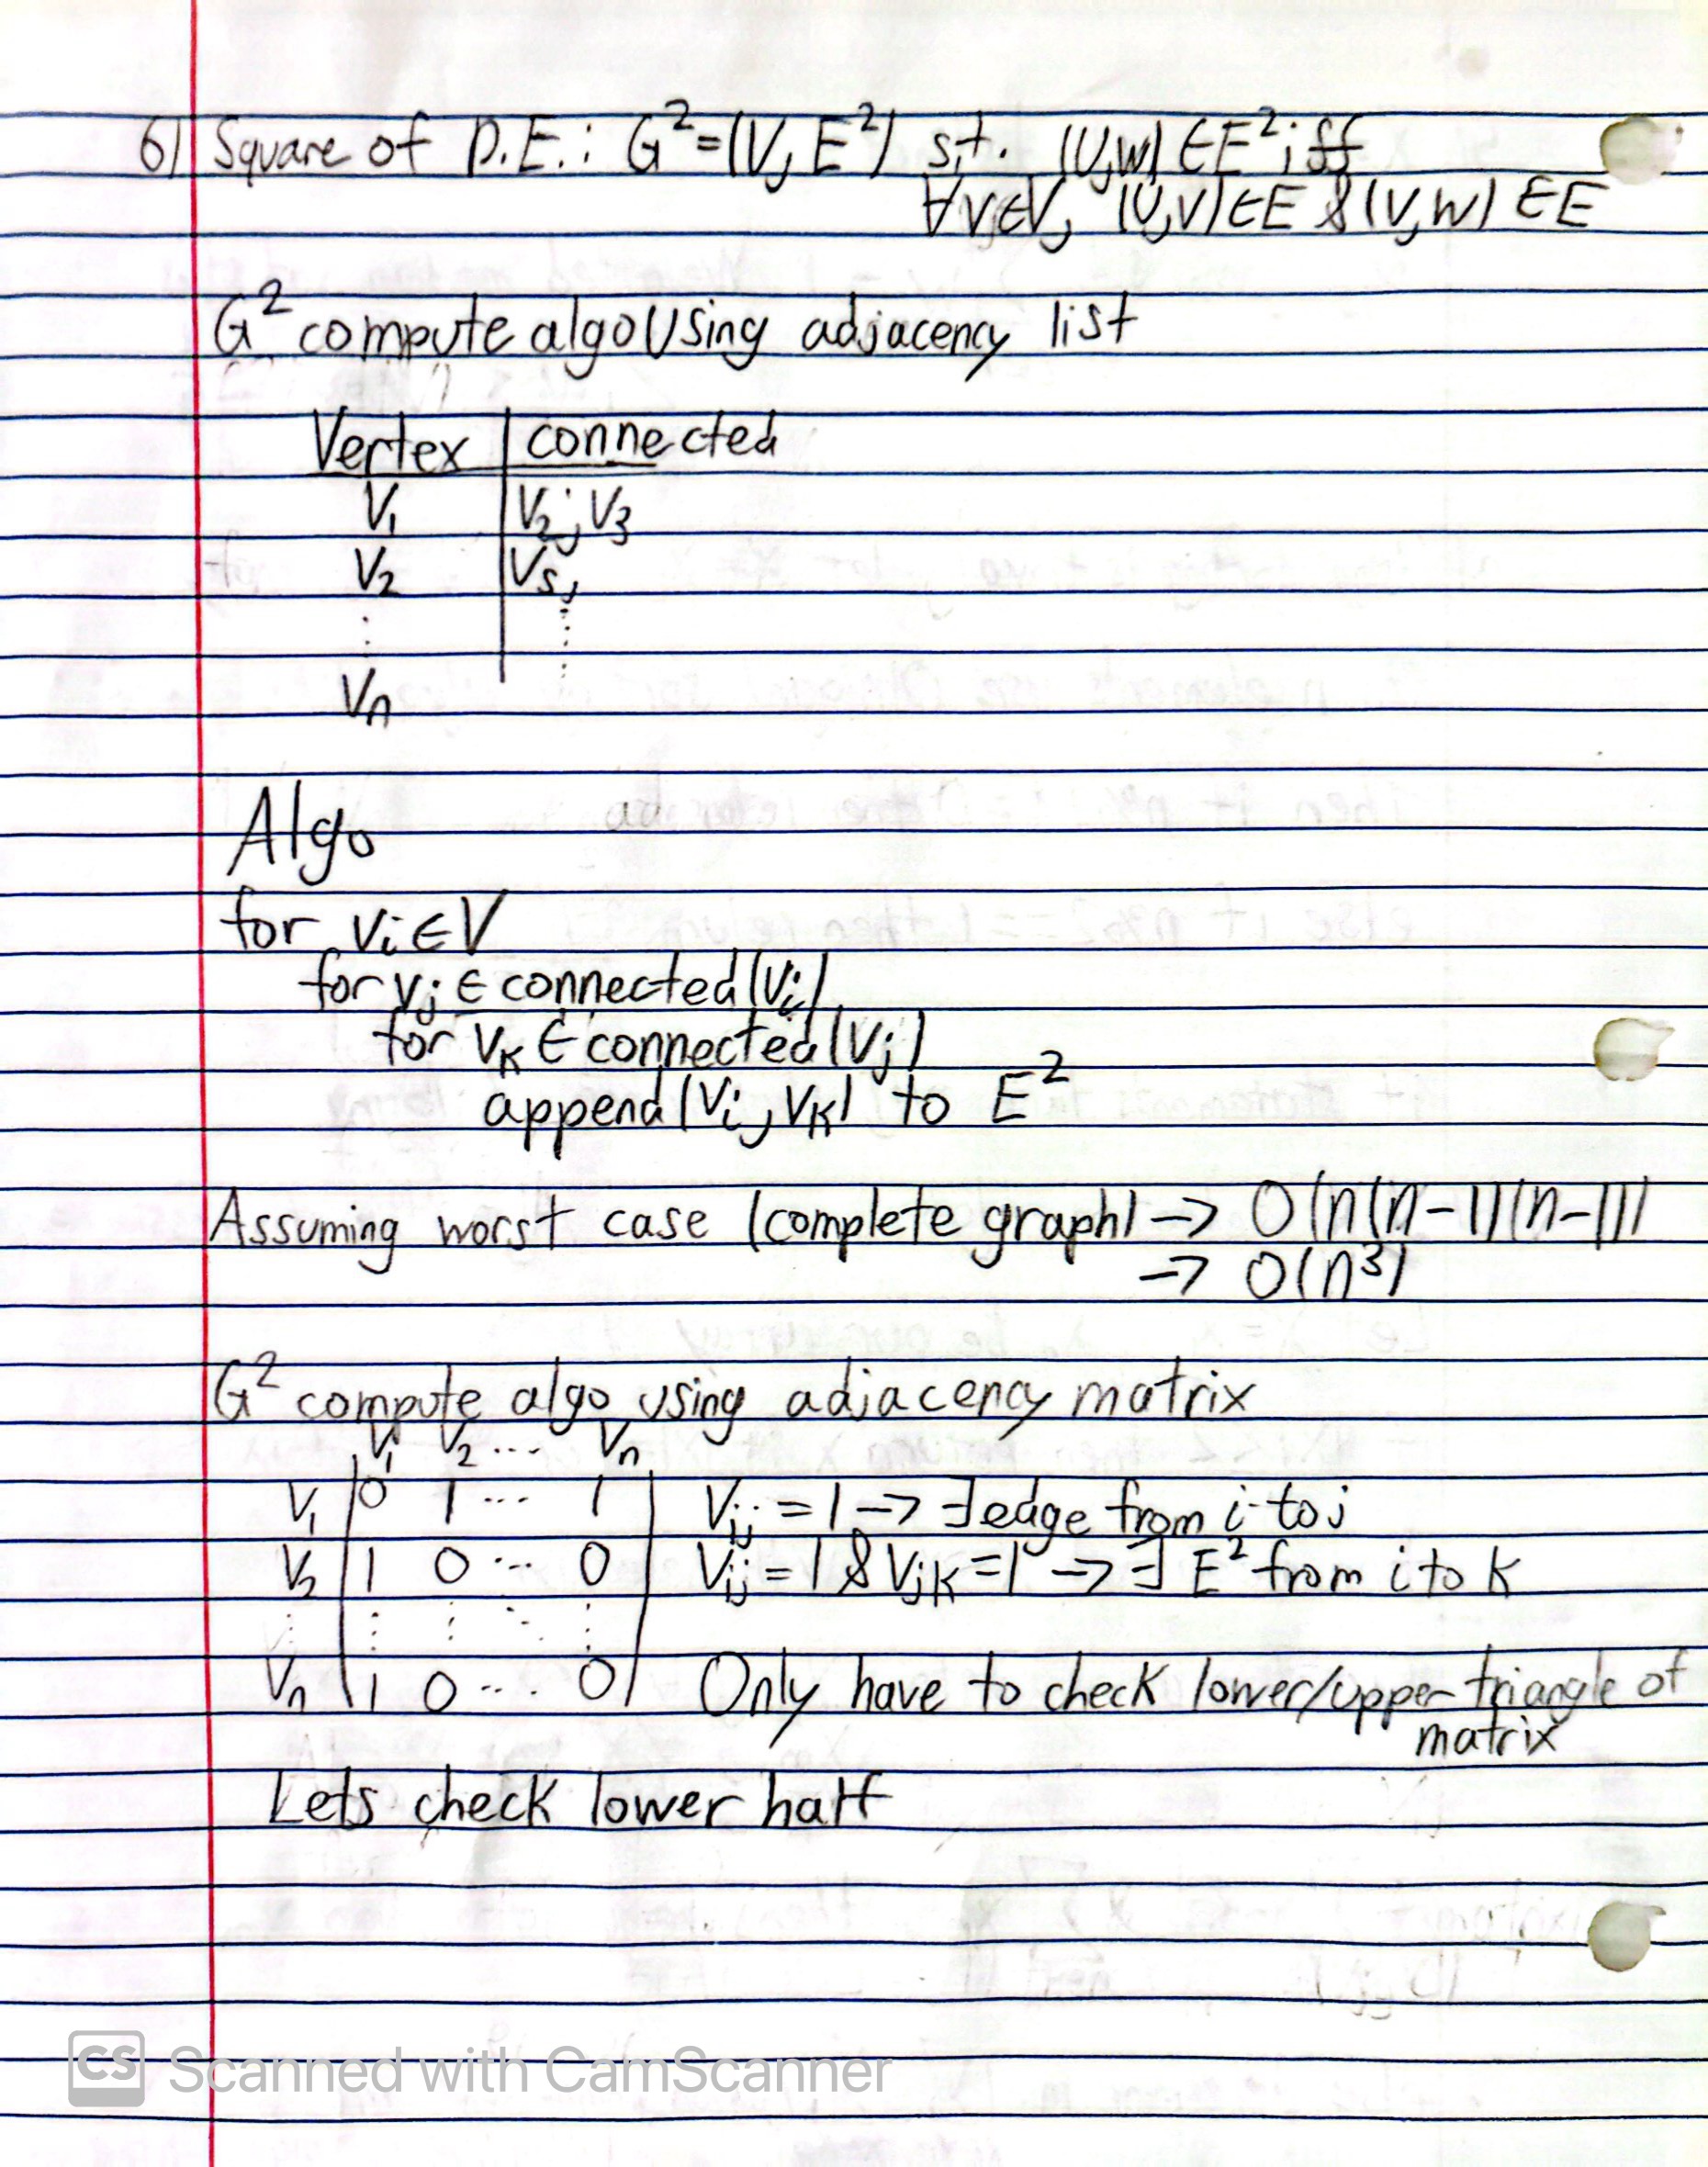 6) Square of D.E.: G²=(V, E²) s.t. (U,W) ∈ E² iff
∀v∈V, (U,V)∈E & (V,W) ∈E
G² compute algo Using adjacency list
Vertex | connected
V₁ | V₂, V₃
V₂ | V₅,
⋮ ⋮
Vₙ
Algo
for vᵢ ∈ V
for vⱼ ∈ connected(Vᵢ)
for Vₖ ∈ connected(Vⱼ)
append (Vᵢ, Vₖ) to E²
Assuming worst case (complete graph) -> O(n(n-1)(n-1))
-> O(n³)
G² compute algo using adjacency matrix
V₁ V₂ ... Vₙ
V₁ | 0 1 ... 1 | Vᵢⱼ = 1 -> ∃ edge from i to j
V₂ | 1 0 ... 0 | Vᵢⱼ = 1 & Vⱼₖ = 1 -> ∃ E² from i to k
⋮ ⋮ ⋮ ⋱ ⋮
Vₙ | 1 0 ... 0 | Only have to check lower/upper triangle of
matrix
Lets check lower half
CS Scanned with CamScanner